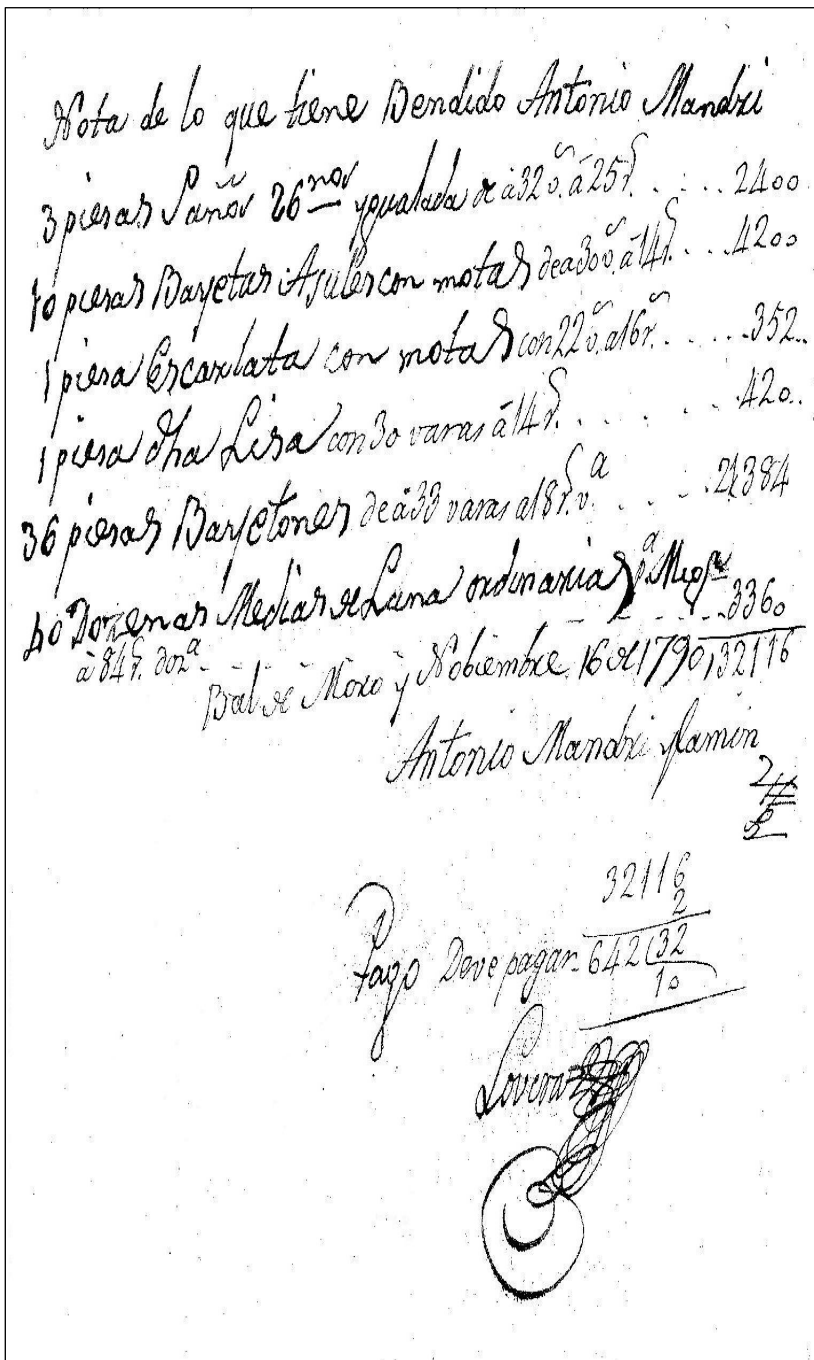 Nota de lo que tiene Bendido Antonio Mandri
3 piesas Paños 26nos ygualada de à 32 v. à 25 r. . . . . 2400
10 piesas Bayetas Asules con motas de a 30 v. a 14 r. . . . 4200
1 piesa Escarlata con motas con 22 v. a 16 r. . . . . 352..
1 piesa dha Lisa con 30 varas à 14 r. . . . . . 420..
36 piesas Bayetones de à 33 varas a 18 r. v.a . . . . 21384
40 Dozenas Medias de Lana ordinarias p.a
à 84 r. doz.a . . . . . . . . . 3360
Bal de Moro y Nobiembre 16 de 1790, 32116
Antonio Mandri
32116
2
Pago Deve pagar 642(32
10
Lovera